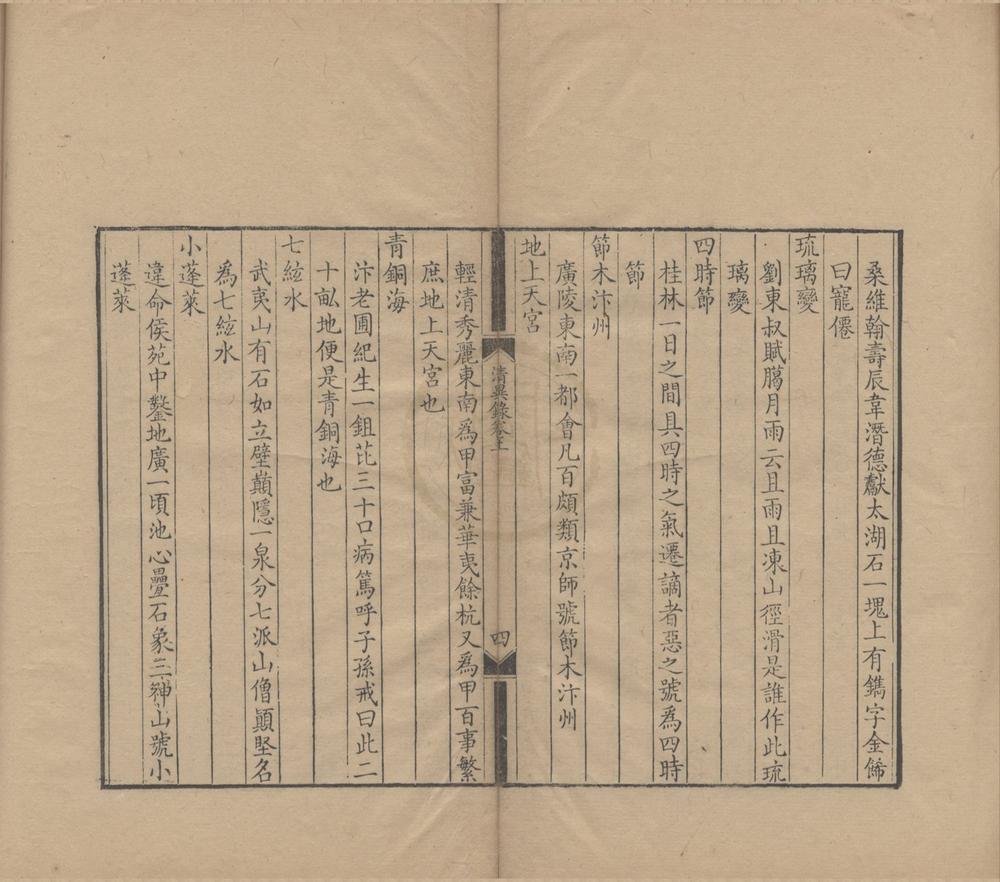 桑維翰壽辰韋潛德獻太湖石一塊上有鐫字金飾
曰寵僊
琉璃變
劉東叔賦臈月雨云且雨且凍山徑滑是誰作此琉
璃變
四時節
桂林一日之間具四時之氣遷謫者惡之號爲四時
節
節木汴州
廣陵東南一都會凡百頗類京師號節木汴州
地上天宮
清異錄卷上
四
輕清秀麗東南爲甲富兼華夷餘杭又爲甲百事繁
庶地上天宮也
青銅海
汴老圃紀生一鉏芘三十口病篤呼子孫戒曰此二
十畝地便是青銅海也
七絃水
武夷山有石如立壁巔隱一泉分七派山僧顚堅名
爲七絃水
小蓬萊
違命侯苑中鑿地廣一頃池心疊石象三神山號小
蓬萊